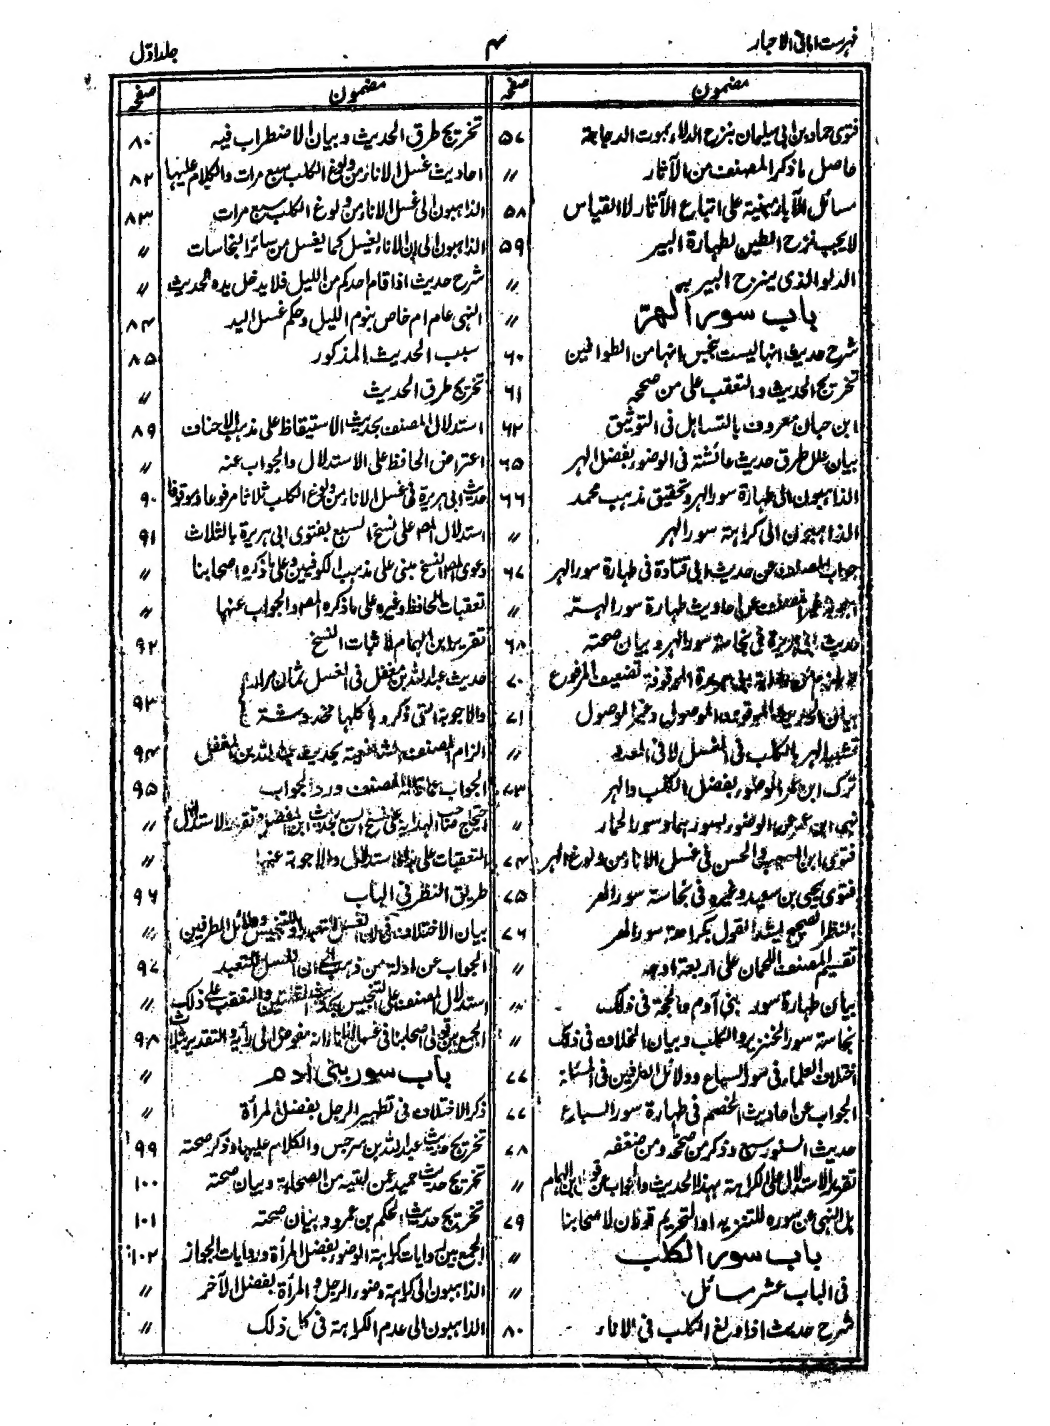 فہرست امانی الاحبار
۴
جلد اول
مضمون صفحہ
فتوی حماد بن ابی سلیمان بنزح الدلاء بموت الدجاجة ۵۷
حاصل ما ذکر المصنف من الآثار //
مسائل الآبار مبنیة علی اتباع الآثار لا القیاس ۵۸
لا یجب نزح الطین لطہارة البیر ۵۹
الدلو الذی ینزح البیر بہ //
باب سور الہرّ //
شرح حدیث انہا لیست بنجس انہا من الطوافین ۶۰
تخریج الحدیث والتعقب علی من صححہ ۶۱
ابن حبان معروف بالتساہل فی التوثیق ۶۲
بیان علل طرق حدیث عائشة فی الوضوء بفضل الہر ۶۵
الذاہبون الی طہارة سور الہر وتحقیق مذہب محمد ۶۶
الذاہبون الی کراہتہ سور الہر //
جواب المصنف عن حدیث ابی قتادة فی طہارة سور الہر ۶۷
المصنف عن احادیث طہارة سور الہرة //
حدیث ابی ہریرة فی نجاستہ سور الہر وبیان صحتہ ۶۸
الموقوفة تضعیف المرفوع ۷۰
بیان الحدیث الموقوف الموصول وغیر الموصول ۷۱
تشبیہ الہر بالکلب فی الغسل لا فی العدد //
ترک ابن عمر الوضوء بفضل الکلب والہر ۷۳
نہی ابن عمر عن الوضوء بسورہما وسور الحمار //
فتوی ابن المسیب والحسن فی غسل الاناء من ولوغ الہر ۷۴
فتوی یحیی بن سعید وغیرہ فی نجاستہ سور الہر ۷۵
النظر الصحیح لیشد القول بکراہة سور الہر ۷۶
تقسیم المصنف اللحمان علی اربعة اوجہ //
بیان طہارة سور بنی آدم والحجة فی ذلک //
نجاستہ سور الخنزیر والکلب وبیان الخلاف فی ذلک //
اختلاف العلماء فی سور السباع ودلائل الطرفین فی المسئلة ۷۷
الجواب عن احادیث الخصم فی طہارة سور السباع ۷۷
حدیث السنور سبع وذکر من صححہ ومن ضعفہ ۷۸
تقریر الاستدلال علی الکراہتہ بہذا الحدیث والجواب عن قول ابن الہمام //
ہل النہی عن سورہ للتنزیہ او التحریم قولان لاصحابنا ۷۹
باب سور الکلب //
فی الباب عشر مسائل //
شرح حدیث اذا ولغ الکلب فی الاناء ۸۰
مضمون صفحہ
تخریج طرق الحدیث وبیان الاضطراب فیہ ۸۰
احادیث غسل الاناء من ولوغ الکلب سبع مرات والکلام علیہا ۸۲
الذاہبون الی غسل الاناء من ولوغ الکلب سبع مرات ۸۳
الذاہبون الی ان الاناء یغسل کما یغسل من سائر النجاسات //
شرح حدیث اذا قام احدکم من اللیل فلا یدخل یدہ الحدیث //
النہی عام ام خاص بنوم اللیل وحکم غسل الید ۸۴
سبب الحدیث المذکور ۸۵
تخریج طرق الحدیث //
استدلال المصنف بحدیث الاستیقاظ علی مذہب الاحناف ۸۹
اعتراض الحافظ علی الاستدلال والجواب عنہ //
حدیث ابی ہریرة فی غسل الاناء من ولوغ الکلب ثلاثا مرفوعا وموقوفا ۹۰
استدلال المص علی نسخ السبع بفتوی ابی ہریرة بالثلاث ۹۱
دعوی المص النسخ مبنی علی مذہب الکوفیین وعلی ما ذکرہ اصحابنا //
تعقبات الحافظ وغیرہ علی ما ذکرہ المص والجواب عنہا //
تقریر ابن الہمام لاثبات النسخ ۹۲
حدیث عبد اللہ بن مغفل فی الغسل ثمان مرار
والاجوبة التی ذکروہا کلہا مخدوشتہ ۹۳
الزام المصنف الشافعیة بحدیث عبد اللہ بن المغفل ۹۴
الجواب عما قالہ المصنف ورد الجواب ۹۵
احتجاج صاحب الہدایة علی نسخ السبع بحدیث ابن المغفل وتقریر الاستدلال //
التعقبات علی ہذا الاستدلال والاجوبة عنہا //
طریق النظر فی الباب ۹۶
بیان الاختلاف فی ان الغسل للتعبد او للتنجیس ودلائل الطرفین //
الجواب عن ادلة من ذہب الی ان الغسل للتعبد ۹۷
استدلال المصنف علی التنجیس بحدیث القلتین والتعقب علی ذلک //
الجمع بین قولی اصحابنا فی غسل الاناء انہ مفوض الی رأیہ والتقدیر بثلاث ۹۸
باب سور بنی آدم //
ذکر الاختلاف فی تطہیر الرجل بفضل المرأة //
تخریج حدیث عبد اللہ بن سرجس والکلام علیہا وذکر صحتہ ۹۹
تخریج حدیث حمید عمن لقیہ من الصحابة وبیان صحتہ ۱۰۰
تخریج حدیث الحکم بن عمرو وبیان صحتہ ۱۰۱
الجمع بین روایات کراہتہ الوضوء بفضل المرأة وروایات الجواز ۱۰۲
الذاہبون الی کراہتہ وضوء الرجل والمرأة بفضل الآخر //
الذاہبون الی عدم الکراہتہ فی کل ذلک //